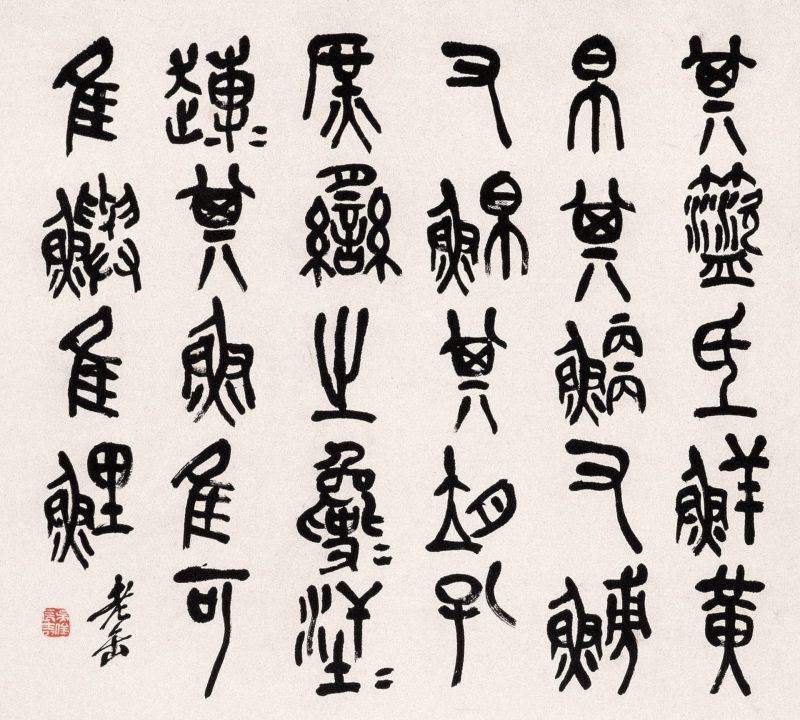 其盜氐鮮黄
帛其鯾又鱄
又鮊其孔
庶臠之毚〻汗〻
其魚隹可
隹鱮隹鯉
老缶